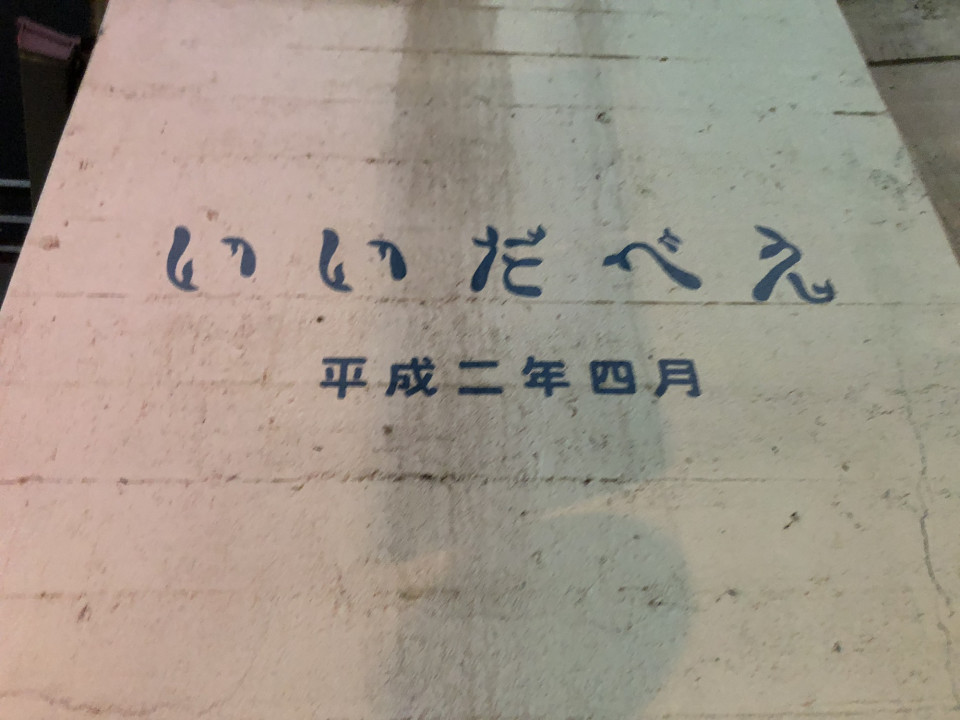 いいだべえ
平成二年四月